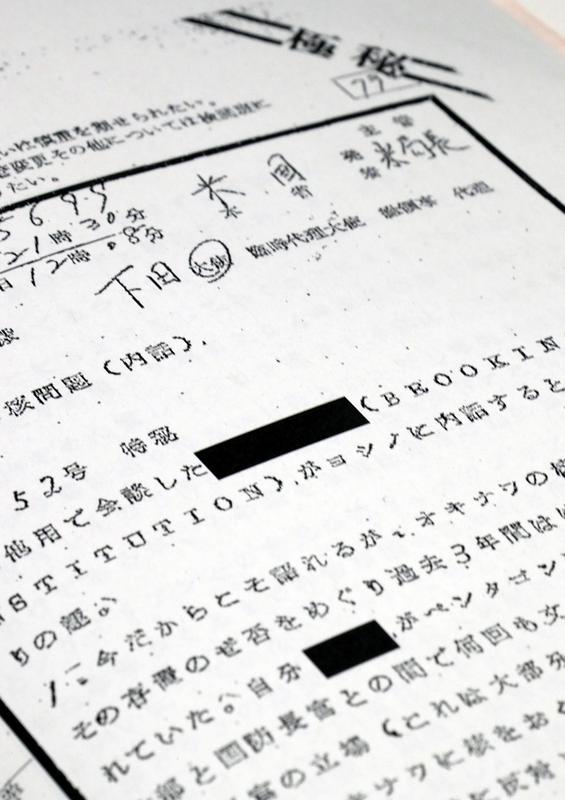 極秘
77
い往慎重を期せられたい。
変更その他については検閲班に
たい。
主管
5699
米国
発
米局長
21時30分
米 省
12時.8分
下田 大使 臨時代理大使 総領事 代理
核問題(内話).
52号 特秘
他用で会談した (BROOKIN
STITUTION).がヨシノに内話すると
りの題。
1.今だからこそ語れるが、オキナワの核
その存置のぜ否をめぐり過去3年間は
れていた。自分 がペンタゴン
部と国防長官との間で何回も文
官の立場(これは大部分
ナワに核をお